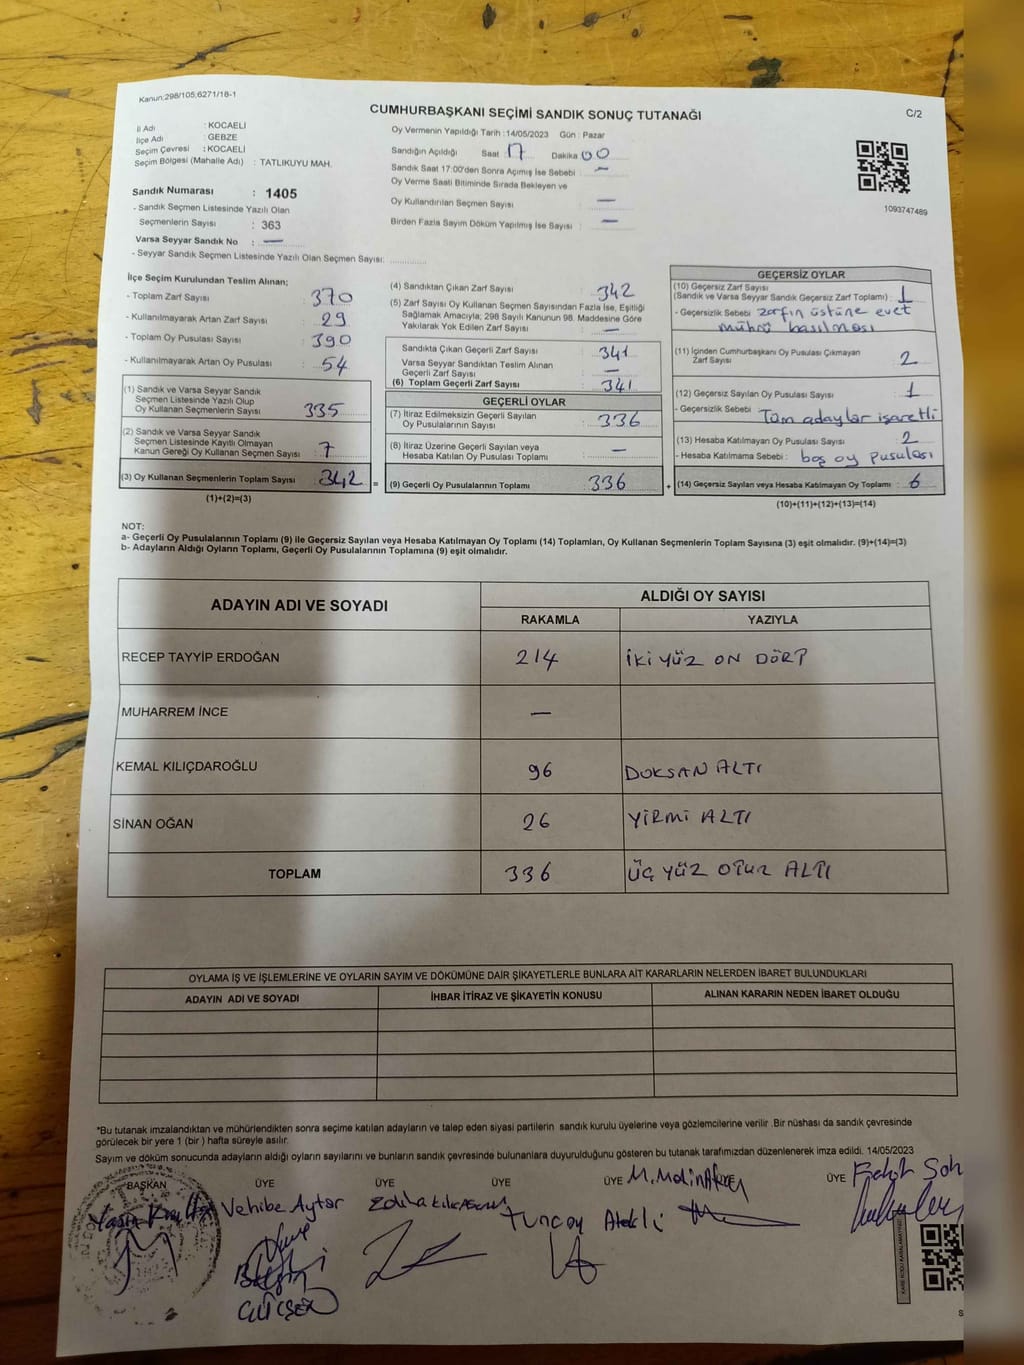 Kanun:298/105;6271/18-1
CUMHURBAŞKANI SEÇİMİ SANDIK SONUÇ TUTANAĞI
C/2
İl Adı : KOCAELİ
İlçe Adı : GEBZE
Seçim Çevresi : KOCAELİ
Seçim Bölgesi (Mahalle Adı) : TATLIKUYU MAH.
Sandık Numarası : 1405
- Sandık Seçmen Listesinde Yazılı Olan
Seçmenlerin Sayısı : 363
Varsa Seyyar Sandık No : —
- Seyyar Sandık Seçmen Listesinde Yazılı Olan Seçmen Sayısı: ..............
Oy Vermenin Yapıldığı Tarih :14/05/2023 Gün : Pazar
Sandığın Açıldığı Saat 17 Dakika 00
Sandık Saat 17:00'den Sonra Açmış İse Sebebi : —
Oy Verme Saati Bitiminde Sırada Bekleyen ve
Oy Kullandırılan Seçmen Sayısı : —
Birden Fazla Sayım Döküm Yapılmış İse Sayısı : —
1093747489
İlçe Seçim Kurulundan Teslim Alınan;
- Toplam Zarf Sayısı : 370
- Kullanılmayarak Artan Zarf Sayısı : 29
- Toplam Oy Pusulası Sayısı : 390
- Kullanılmayarak Artan Oy Pusulası : 54
(1) Sandık ve Varsa Seyyar Sandık
Seçmen Listesinde Yazılı Olup
Oy Kullanan Seçmenlerin Sayısı : 335
(2) Sandık ve Varsa Seyyar Sandık
Seçmen Listesinde Kayıtlı Olmayan
Kanun Gereği Oy Kullanan Seçmen Sayısı : 7
(3) Oy Kullanan Seçmenlerin Toplam Sayısı : 342 =
(1)+(2)=(3)
(4) Sandıktan Çıkan Zarf Sayısı : 342
(5) Zarf Sayısı Oy Kullanan Seçmen Sayısından Fazla İse, Eşitliği
Sağlamak Amacıyla; 298 Sayılı Kanunun 98. Maddesine Göre
Yakılarak Yok Edilen Zarf Sayısı : —
Sandıkta Çıkan Geçerli Zarf Sayısı : 341
Varsa Seyyar Sandıktan Teslim Alınan
Geçerli Zarf Sayısı : —
(6) Toplam Geçerli Zarf Sayısı : 341
GEÇERLİ OYLAR
(7) İtiraz Edilmeksizin Geçerli Sayılan
Oy Pusulalarının Sayısı : 336
(8) İtiraz Üzerine Geçerli Sayılan veya
Hesaba Katılan Oy Pusulası Toplamı : —
(9) Geçerli Oy Pusulalarının Toplamı : 336 +
GEÇERSİZ OYLAR
(10) Geçersiz Zarf Sayısı
(Sandık ve Varsa Seyyar Sandık Geçersiz Zarf Toplamı) : 1
- Geçersizlik Sebebi zarfın üstüne evet
mührü basılması
(11) İçinden Cumhurbaşkanı Oy Pusulası Çıkmayan
Zarf Sayısı : 2
(12) Geçersiz Sayılan Oy Pusulası Sayısı : 1
- Geçersizlik Sebebi : Tüm adaylar işaretli
(13) Hesaba Katılmayan Oy Pusulası Sayısı : 2
- Hesaba Katılmama Sebebi : boş oy pusulası
(14) Geçersiz Sayılan veya Hesaba Katılmayan Oy Toplamı : 6
(10)+(11)+(12)+(13)=(14)
NOT:
a- Geçerli Oy Pusulalarının Toplamı (9) ile Geçersiz Sayılan veya Hesaba Katılmayan Oy Toplamı (14) Toplamları, Oy Kullanan Seçmenlerin Toplam Sayısına (3) eşit olmalıdır. (9)+(14)=(3)
b- Adayların Aldığı Oyların Toplamı, Geçerli Oy Pusulalarının Toplamına (9) eşit olmalıdır.
ADAYIN ADI VE SOYADI
ALDIĞI OY SAYISI
RAKAMLA YAZIYLA
RECEP TAYYİP ERDOĞAN 214 İKİ YÜZ ON DÖRT
MUHARREM İNCE —
KEMAL KILIÇDAROĞLU 96 DOKSAN ALTI
SİNAN OĞAN 26 YİRMİ ALTI
TOPLAM 336 ÜÇ YÜZ OTUZ ALTI
OYLAMA İŞ VE İŞLEMLERİNE VE OYLARIN SAYIM VE DÖKÜMÜNE DAİR ŞİKAYETLERLE BUNLARA AİT KARARLARIN NELERDEN İBARET BULUNDUKLARI
ADAYIN ADI VE SOYADI İHBAR İTİRAZ VE ŞİKAYETİN KONUSU ALINAN KARARIN NEDEN İBARET OLDUĞU
*Bu tutanak imzalandıktan ve mühürlendikten sonra seçime katılan adayların ve talep eden siyasi partilerin sandık kurulu üyelerine veya gözlemcilerine verilir .Bir nüshası da sandık çevresinde
görülecek bir yere 1 (bir ) hafta süreyle asılır.
Sayım ve döküm sonucunda adayların aldığı oyların sayılarını ve bunların sandık çevresinde bulunanlara duyurulduğunu gösteren bu tutanak tarafımızdan düzenlenerek imza edildi. 14/05/2023
BAŞKAN ÜYE ÜYE ÜYE ÜYE ÜYE
Vehibe Aytar
Tuncay